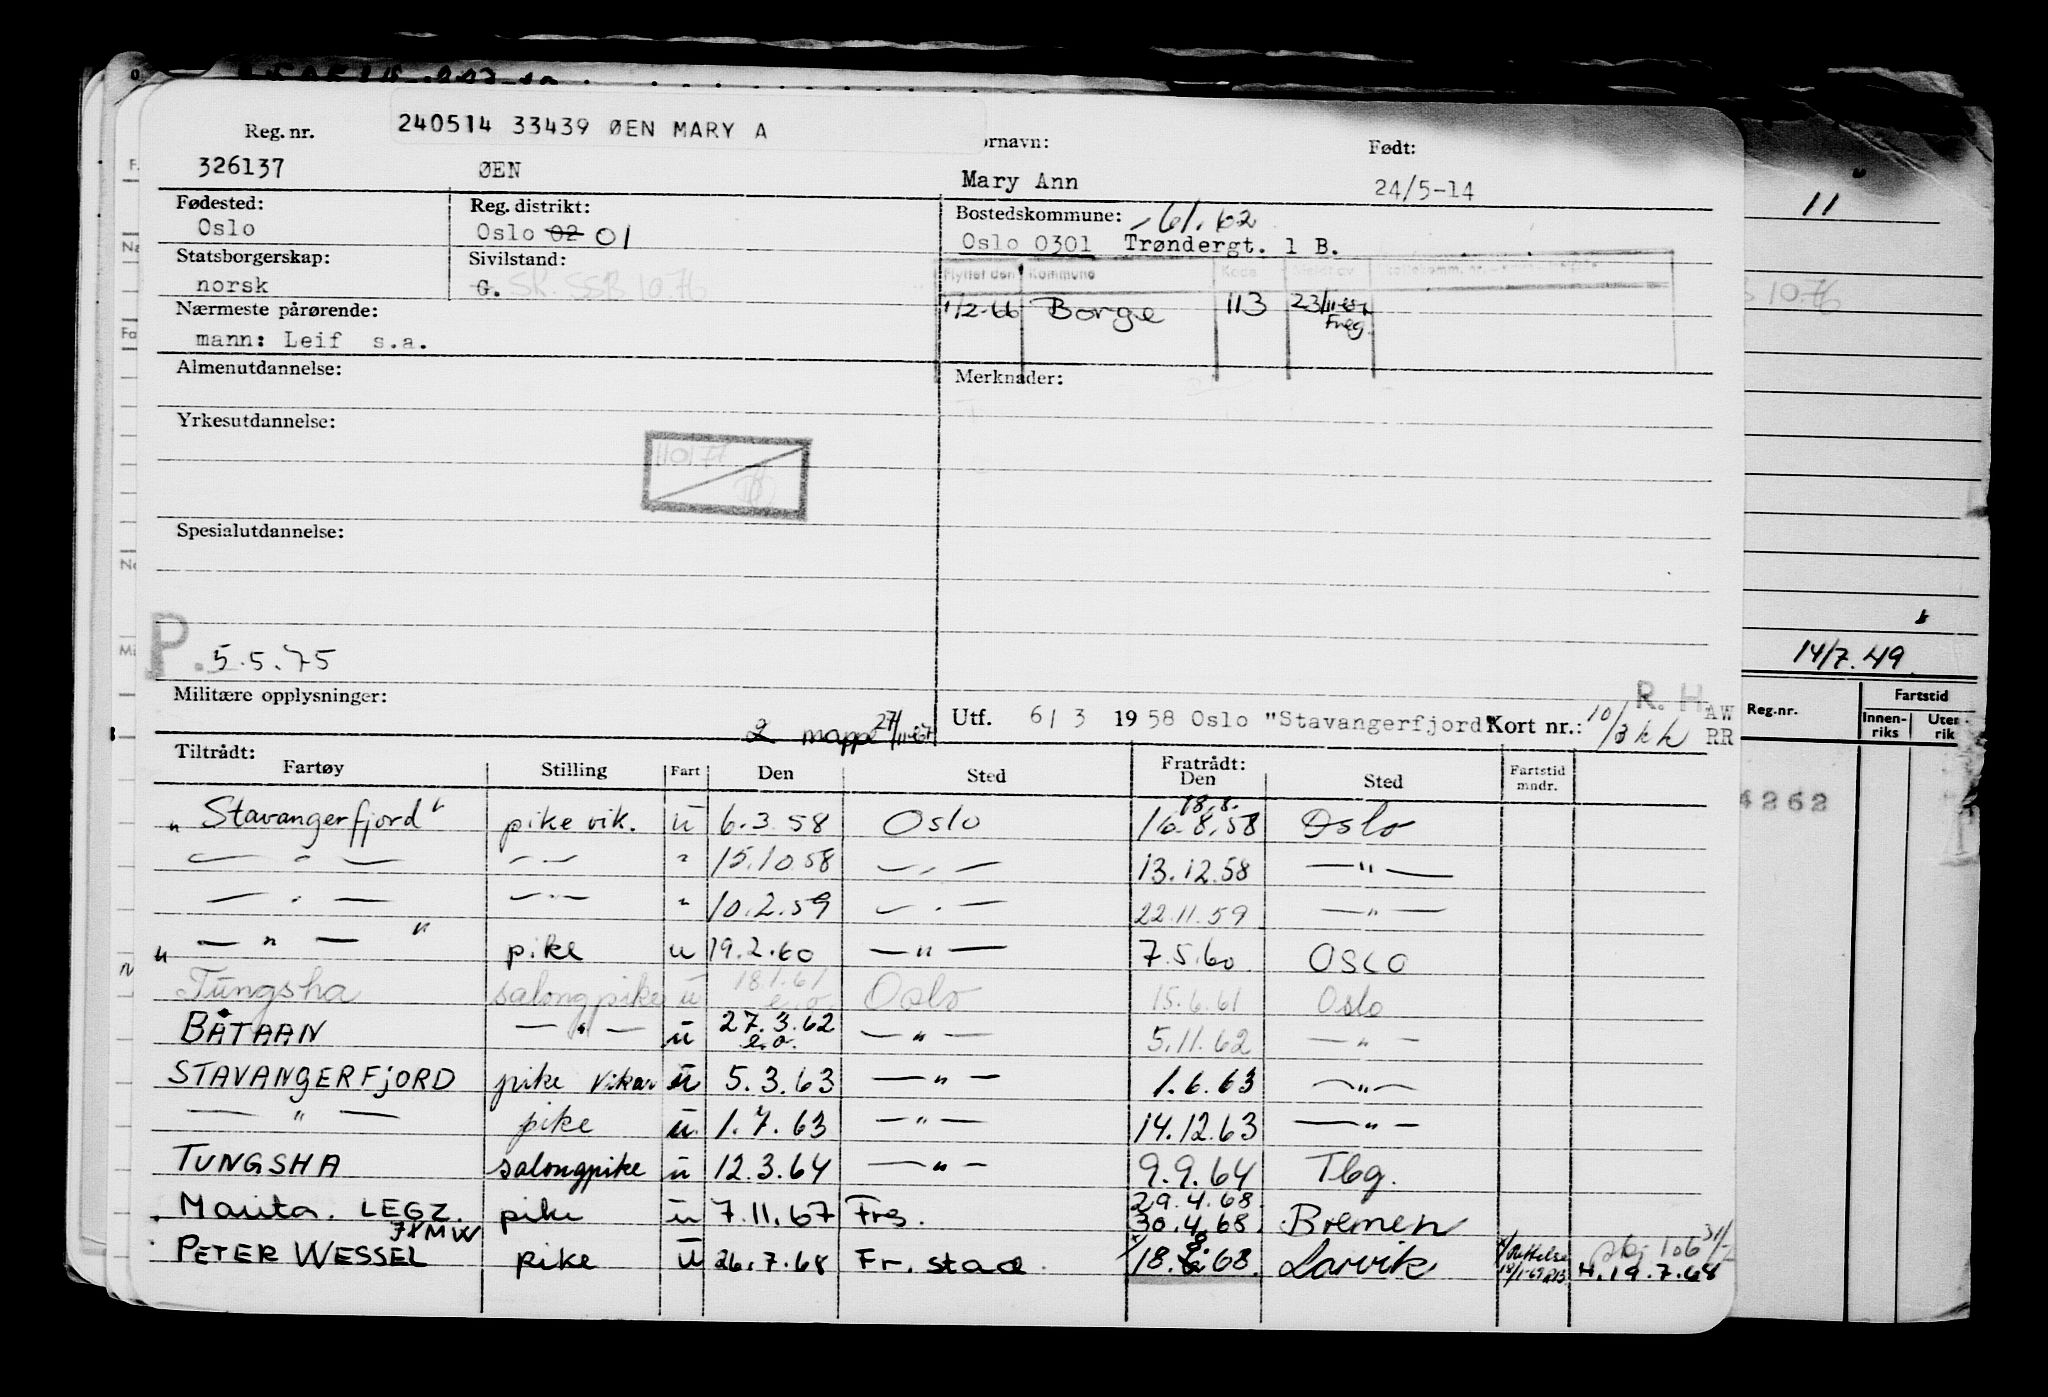 240514 33439 ØEN MARY A
Reg. nr. ornavn: Født:
326137 ØEN Mary Ann 24/5-14
Fødested: Reg. distrikt: Bostedskommune: -61.62
Oslo Oslo 02 01 Oslo 0301 Trøndergt. 1 B.
Statsborgerskap: Sivilstand: Flyttet den Kommune Kode Meldt av
norsk G. SK. SSB 10.76
1/2-66 Borge 113 23/11-67 Freg.
Nærmeste pårørende:
mann: Leif s.a.
Almenutdannelse: Merknader:
Yrkesutdannelse:
Spesialutdannelse:
P. 5.5.75
Militære opplysninger:
2 mappe 27/11-67
R. H. AW
Utf. 6/ 3 19 58 Oslo "Stavangerfjord" Kort nr.: 10/3 kk RR
Tiltrådt: Fratrådt:
Fartøy Stilling Fart Den Sted Den Sted Fartstid mndr.
"Stavangerfjord" pike vik. u 6.3.58 Oslo 18.8. 16.8.58 Oslo
— " — — " — " 15.10.58 — " — 13.12.58 — " —
— " — — " — " 10.2.59 — " — 22.11.59 — " —
" — " — " pike u 19.2.60 — " — 7.5.60 OSLO
Tungsha salongpike u 18.1.61 e.o. Oslo 15.6.61 Oslo
BATAAN — " — u 27.3.62 e.o. — " — 5.11.62 — " —
STAVANGERFJORD pike vikar u 5.3.63 — " — 1.6.63 — " —
— " — pike u 1.7.63 — " — 14.12.63 — " —
TUNGSHA salongpike u 12.3.64 — " — 9.9.64 Tbg.
Marita. LEGZ. pike u 7.11.67 Fres. 29.4.68 30.4.68 Bremen
PETER WESSEL JXMW pike u 26.7.68 Fr. stad 18.8.68 Larvik x/Rettelse 106 31/
H. 19.7.68
11
14/7.49
Reg.nr. Fartstid
Innenriks Uten-rik
4262